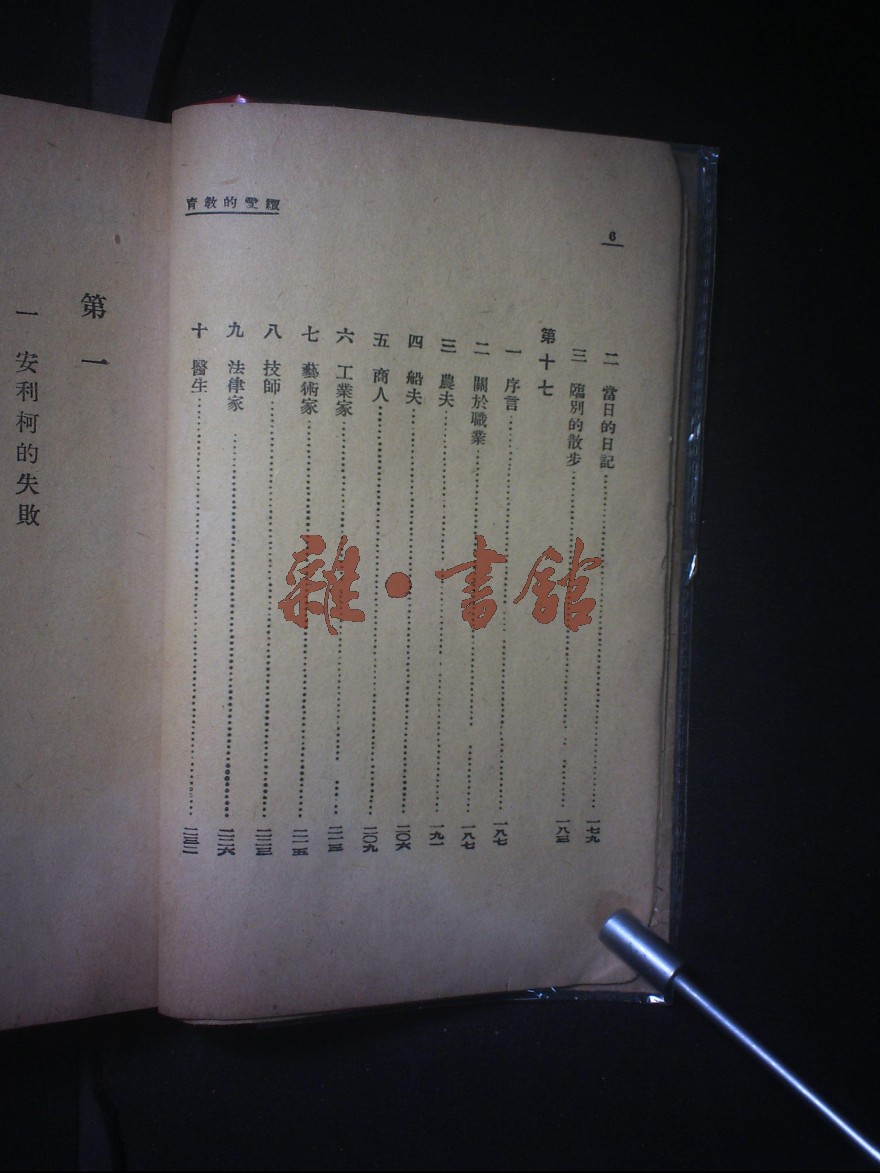 續愛的教育
6
二 當日的日記 一七九
三 臨別的散步 一八三
第十七
一 序言 一八七
二 關於職業 一八七
三 農夫 一九一
四 船夫 二〇六
五 商人 二〇九
六 工業家 二一三
七 藝術家 二一五
八 技師 二二三
九 法律家 二二六
十 醫生 二三二
第一
一 安利柯的失敗
雜·書館